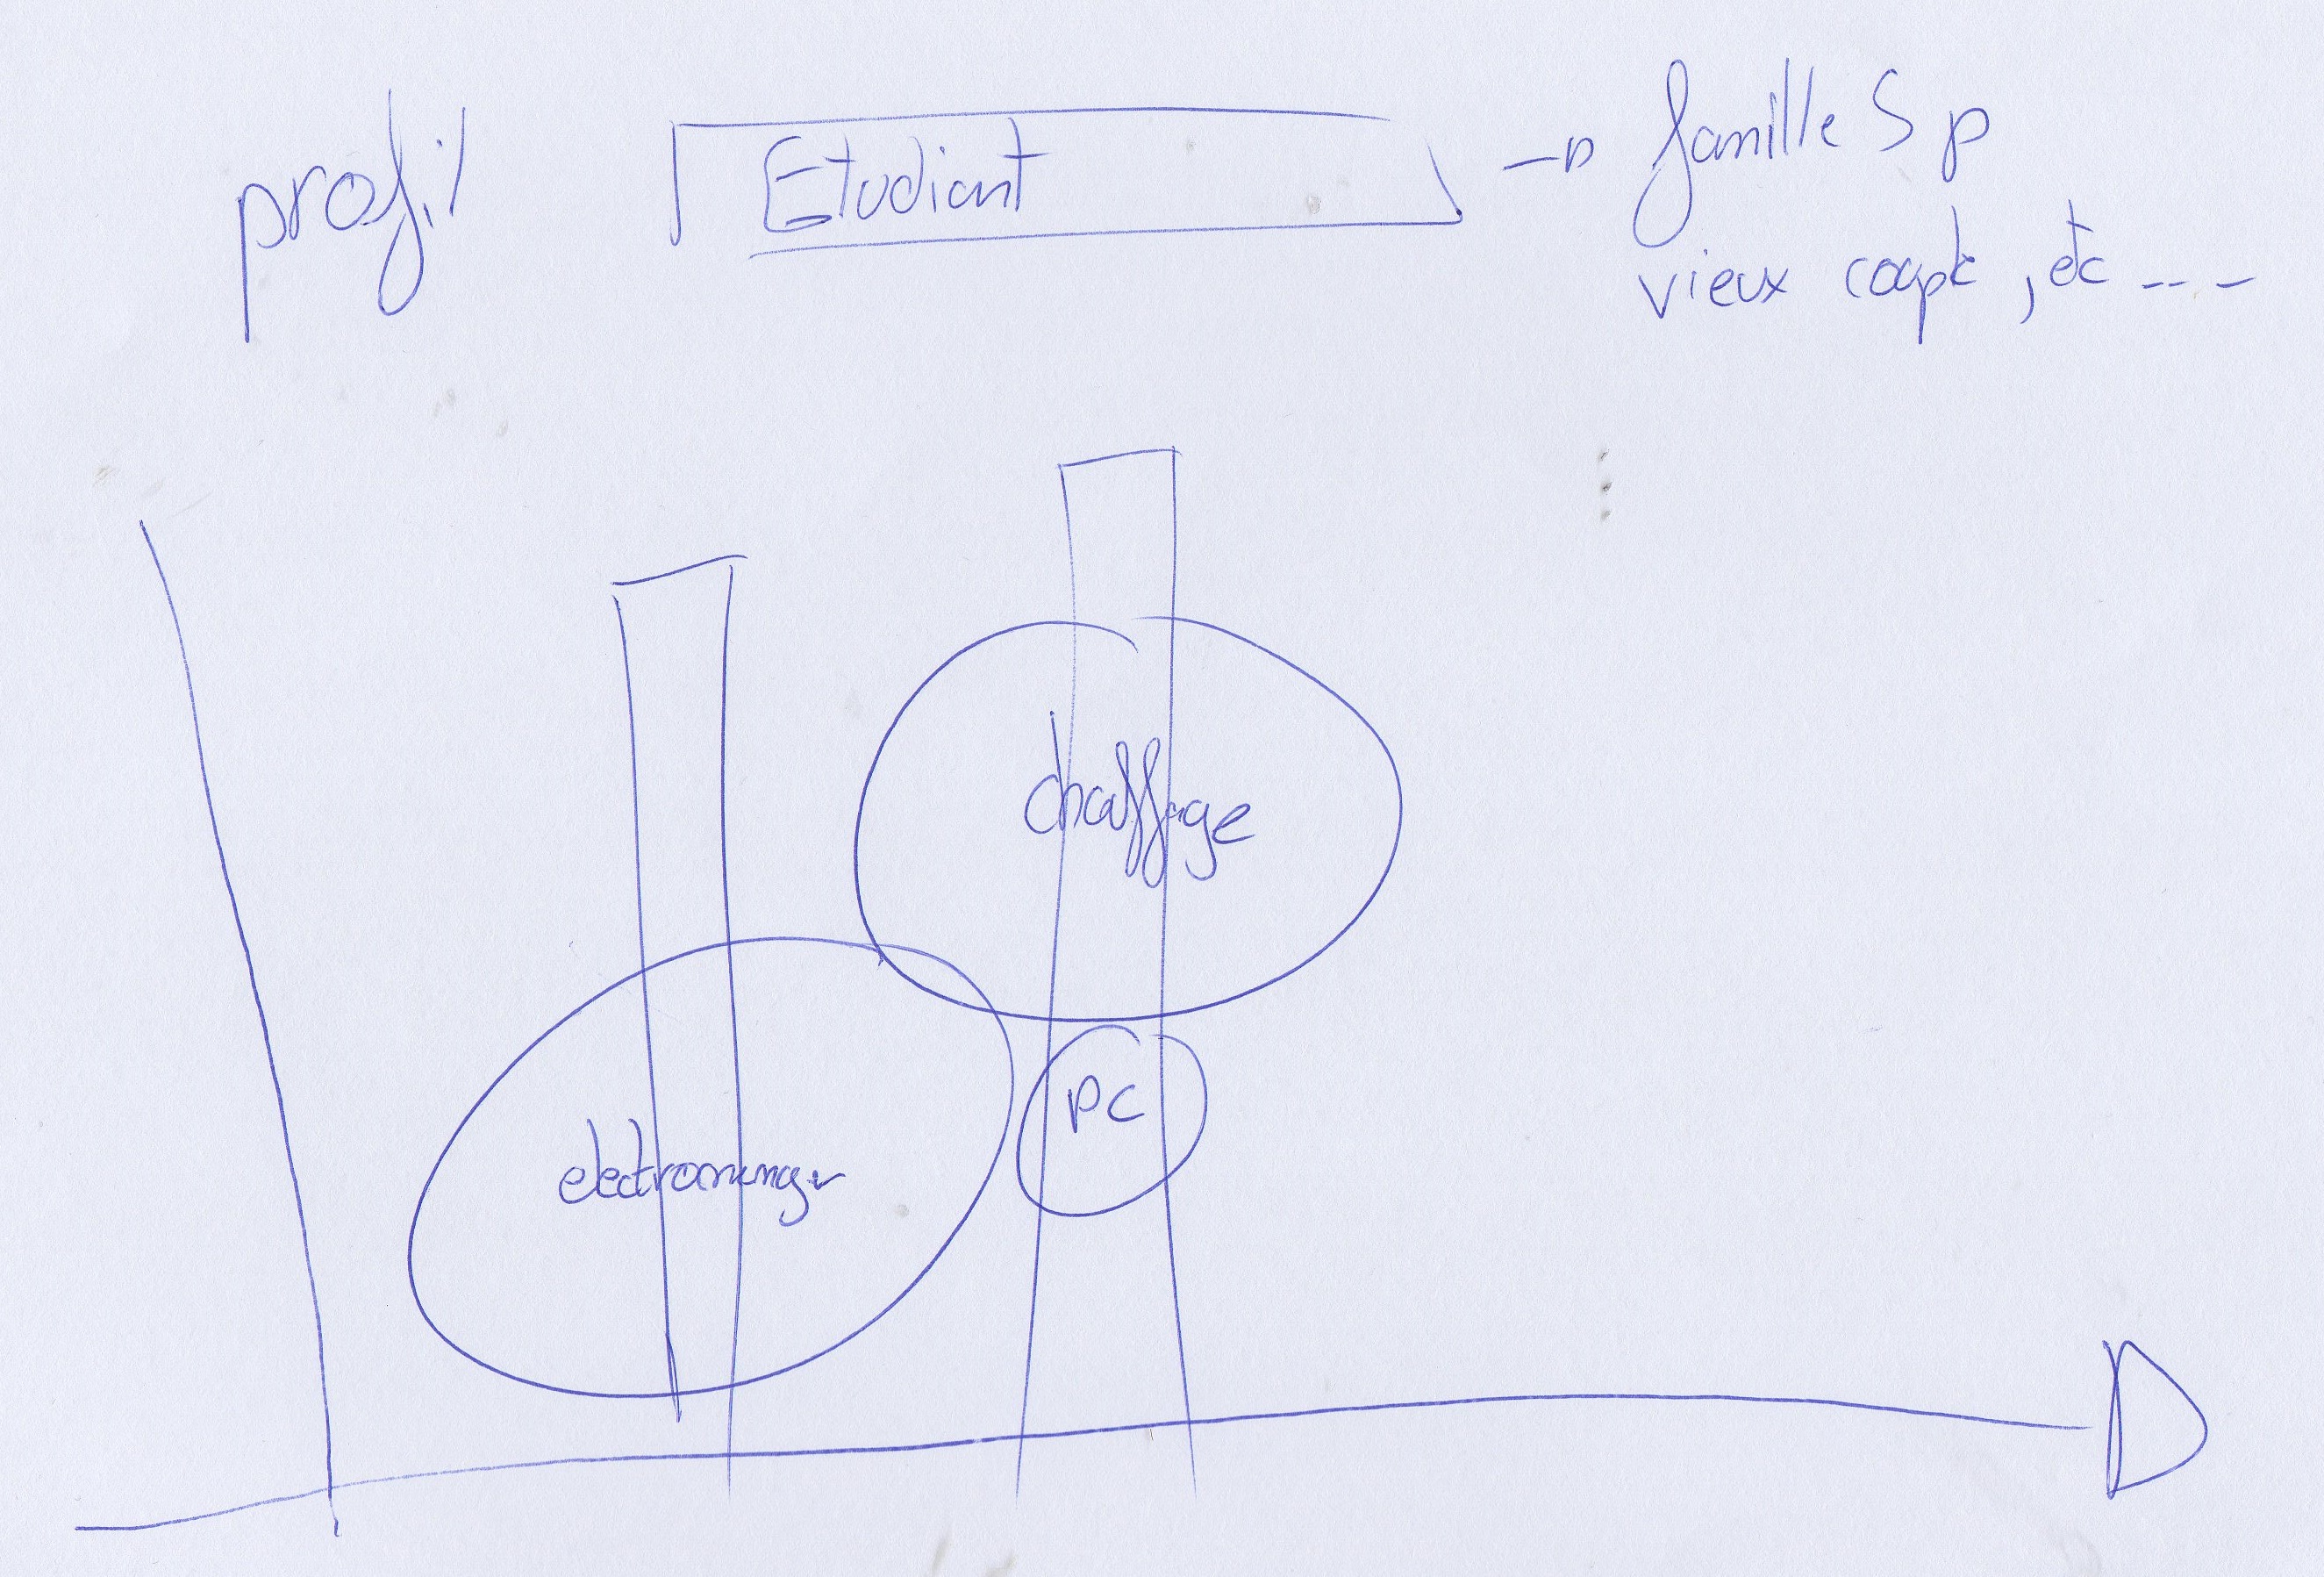 profil
Etudiant
famille 5 p
vieux couple, etc ---
chauffage
PC
electromenager